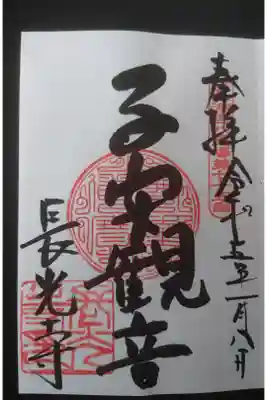 奉拝 令和五年一月八日
子安観音
長光寺